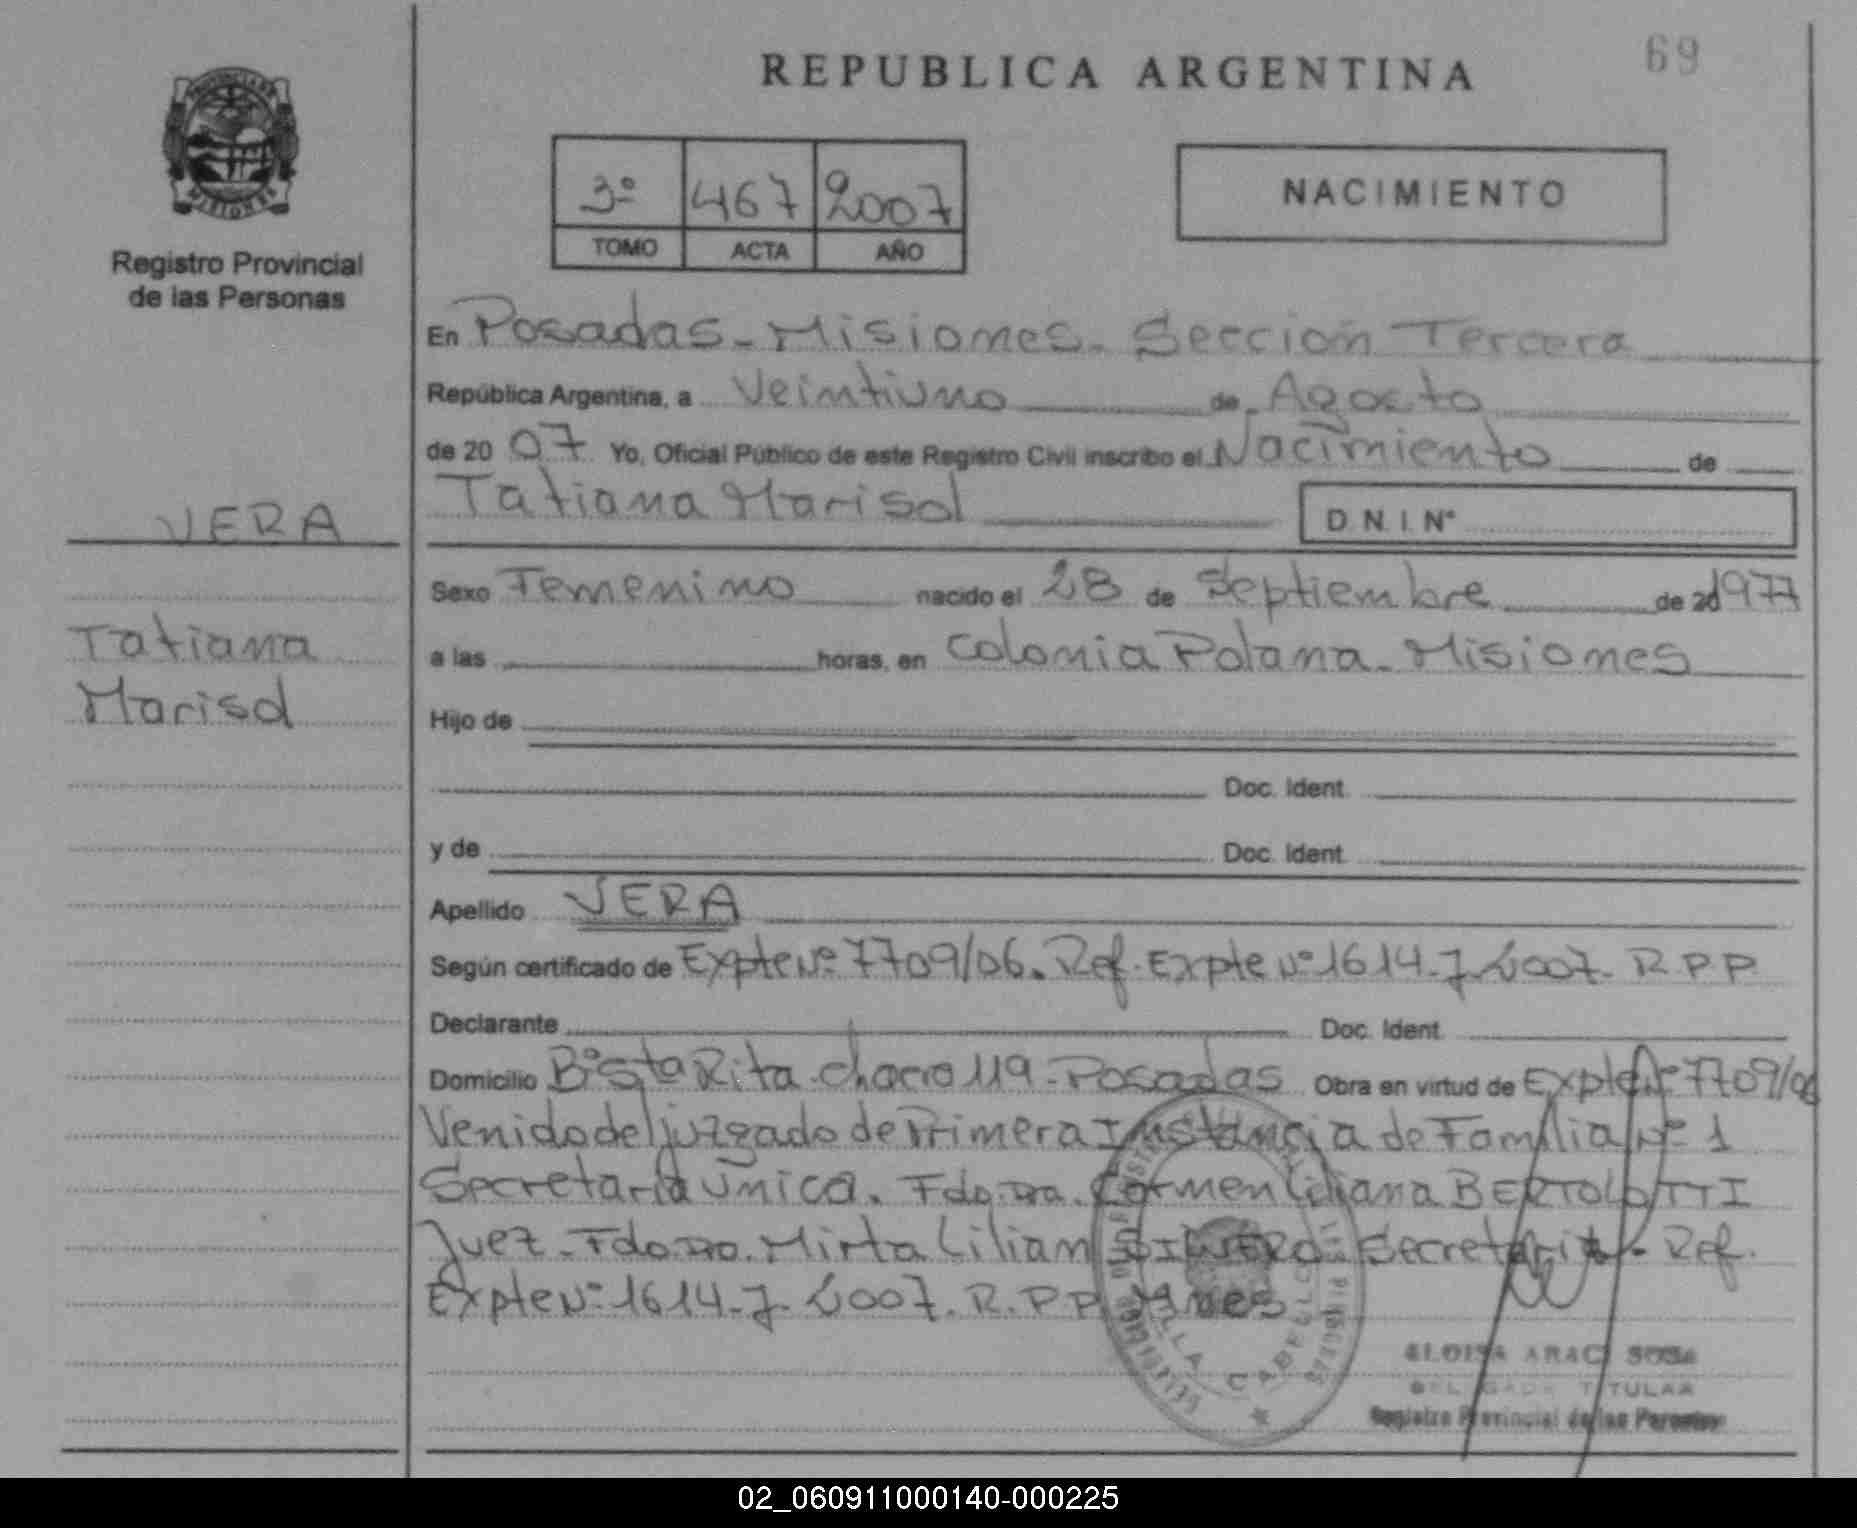 69
REPUBLICA ARGENTINA
PROVINCIA DE MISIONES
3º 467 2007
TOMO ACTA AÑO
NACIMIENTO
Registro Provincial
de las Personas
En Posadas - Misiones - Sección Tercera
República Argentina, a Veintiuno de Agosto
de 20 07 Yo, Oficial Público de este Registro Civil inscribo el Nacimiento de
Tatiana Marisol D.N.I. Nº
VERA
Sexo Femenino nacido el 28 de Septiembre de 20 1977
Tatiana
Marisol
a las horas, en Colonia Polana - Misiones
Hijo de
Doc. Ident.
y de Doc. Ident.
Apellido VERA
Según certificado de Expte Nº 7709/06. Ref. Expte Nº 1614-J-2007. R.P.P
Declarante Doc. Ident.
Domicilio Bº Sta Rita - chacra 119 - Posadas Obra en virtud de Expte Nº 7709/06
Venido del juzgado de Primera Instancia de Familia Nº 1
Secretaria única. Fdo. Dra. Carmen Liliana BERTOLOTTI
Juez - Fdo. Dra. Mirta Lilian Secretaria - Ref.
Expte Nº 1614-J-2007. R.P.P. Mnes
SOSA
TITULAR
Registro Provincial de las Personas
VILLA CABELLO
02_060911000140-000225